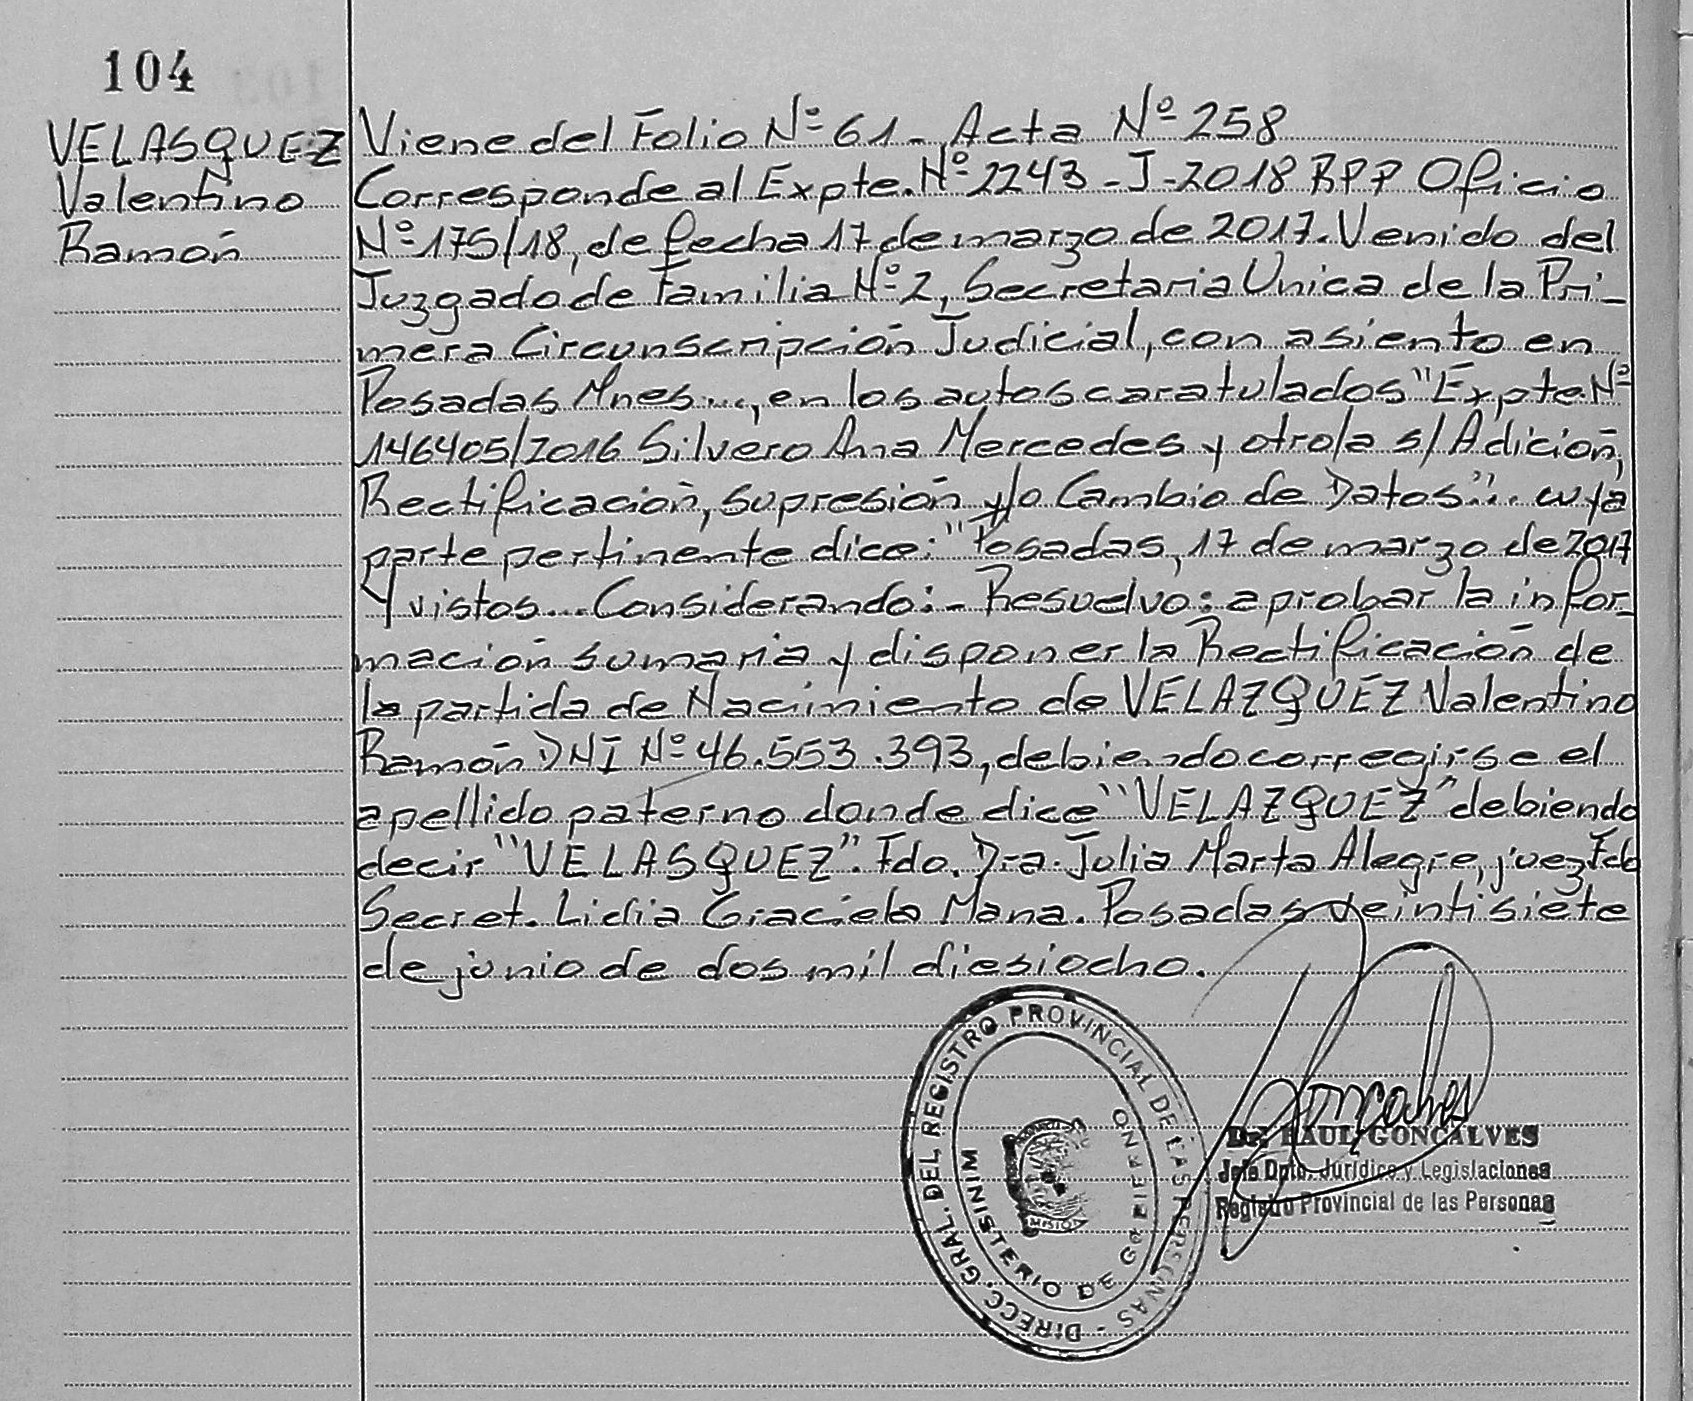 104
VELASQUEZ
Valentino
Ramón
Viene del Folio Nº 61 - Acta Nº 258
Corresponde al Expte. Nº 2243 - J - 2018 RPP Oficio
Nº 175/18, de fecha 17 de marzo de 2017. Venido del
Juzgado de Familia Nº 2, Secretaria Unica de la Pri-
mera Circunscripción Judicial, con asiento en
Posadas Mnes..., en los autos caratulados "Expte. Nº
146405/2016 Silvero Ana Mercedes y otro/a s/ Adición,
Rectificación, supresión y/o Cambio de Datos"... cuya
parte pertinente dice: "Posadas, 17 de marzo de 2017
Y vistos... Considerando: - Resuelvo: aprobar la infor-
mación sumaria y disponer la Rectificación de
la partida de Nacimiento de VELAZQUEZ Valentino
Ramón DNI Nº 46.553.393, debiendo corregirse el
apellido paterno donde dice "VELAZQUEZ" debiendo
decir "VELASQUEZ". Fdo. Dra. Julia Marta Alegre, juez Fdo
Secret. Lidia Graciela Mana. Posadas veintisiete
de junio de dos mil diesiocho.
DIRECC. GRAL. DEL REGISTRO PROVINCIAL DE LAS PERSONAS -
MINISTERIO DE GOBIERNO
Gonçalves
Dr. RAUL GONCALVES
Jefe Dpto. Jurídico y Legislaciones
Registro Provincial de las Personas